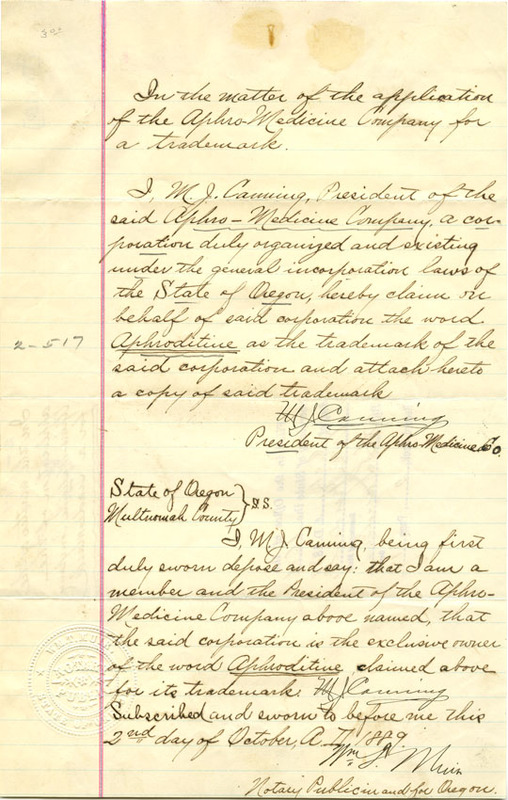 3⁰⁰
In the matter of the application
of the Aphro-Medicine Company for
a trademark.
I, M. J. Canning, President of the
said Aphro-Medicine Company, a cor-
poration duly organized and existing
under the general incorporation laws of
the State of Oregon, hereby claim on
behalf of said corporation the word
2-517
Aphroditine as the trademark of the
said corporation and attach hereto
a copy of said trademark
M J Canning
President of the Aphro-Medicine Co.
State of Oregon
Multnomah County } S.S.
I, M. J. Canning, being first
duly sworn depose and say: that I am a
member and the President of the Aphro-
Medicine Company above named, that
the said corporation is the exclusive owner
of the word Aphroditine claimed above
for its trademark. M J Canning
Subscribed and sworn to before me this
2nd day of October, A.D. 1889.
Wm
Notary Public in and for Oregon.
NOTARY
PUBLIC